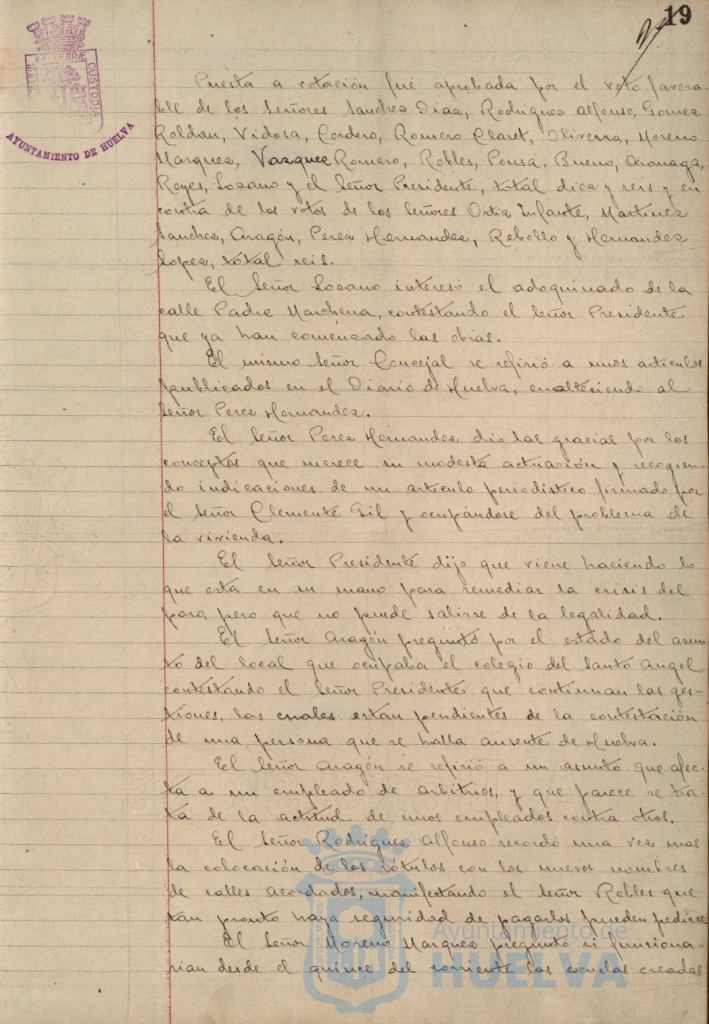 19
AYUNTAMIENTO DE HUELVA
Puesta a votación fué aprobada por el voto favora-
ble de los Señores Sanchez Diaz, Rodriguez Alfonso, Gomez
Roldan, Vidosa, Cordero, Romero Claret, Oliveira, Moreno
Marquez, Vazquez Romero, Robles, Ponsá, Bueno,
Reyes, Lozano y el Señor Presidente, total diez y seis y en
contra de los votos de los Señores Ortiz Infante, Martinez
Sanchez, Aragón, Perez Hernandez, Rebollo y Hernandez
Lopez, total seis.
El Señor Lozano interesó el adoquinado de la
calle Padre Marchena, contestando el Señor Presidente
que ya han comenzado las obras.
El mismo Señor Concejal se refirió a unos articulos
publicados en el Diario de Huelva, enalteciendo al
Señor Perez Hernandez.
El Señor Perez Hernandez dió las gracias por los
conceptos que merece su modesta actuación y recogien-
do indicaciones de un articulo periodistico firmado por
el Señor Clemente Gil y ocupándose del problema de
la vivienda.
El Señor Presidente dijo que viene haciendo lo
que está en su mano para remediar la crisis del
paro, pero que no puede salirse de la legalidad.
El Señor Aragón preguntó por el estado del asun-
to del local que ocupaba el colegio del Santo Angel
contestando el Señor Presidente que continuan las ges-
tiones, las cuales estan pendientes de la contestación
de una persona que se halla ausente de Huelva.
El Señor Aragón se refirió a un asunto que afec-
ta a un empleado de arbitrios, y que parece se tra-
ta de la actitud de unos empleados contra otros.
El Señor Rodriguez Alfonso recordó una vez mas
la colocación de los rótulos con los nuevos nombres
de calles acordados, manifestando el Señor Robles que
tan pronto haya seguridad de pagarlos pueden pedirse
El Señor Moreno Marquez preguntó si funciona-
rian desde el quince del corriente las escuelas creadas
Ayuntamiento de
HUELVA